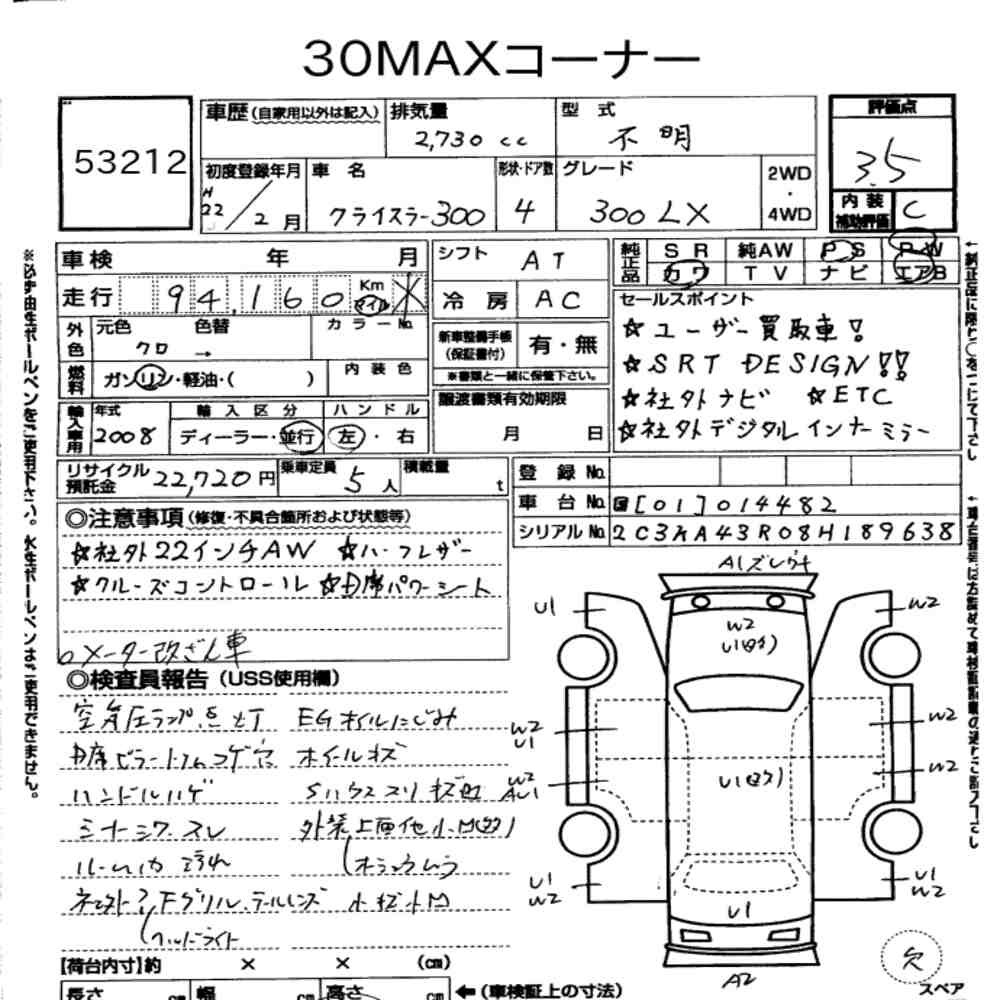 30MAXコーナー
53212
車歴 (自家用以外は記入) 排気量 2,730 cc 型式 不明
評価点 3.5
内装補助評価 C
初度登録年月 H22/2月 車名 クライスラー300 形状・ドア数 4 グレード 300 LX 2WD・4WD
車検 年 月
走行 94,160 Km マイル
シフト AT
冷房 AC
純正品 SR 純AW PS PW
カワ TV ナビ エアB
外色 元色 クロ 色替 → カラーNo.
燃料 ガソリン・軽油・( ) 内装色
新車整備手帳(保証書付) 有・無
※書類と一緒に保管下さい。
セールスポイント
☆ユーザー買取車!
☆SRT DESIGN!!
☆社外ナビ ☆ETC
☆社外デジタルインナーミラー
輸入車用 年式 2008 輸入区分 ディーラー・並行 ハンドル 左・右
譲渡書類有効期限 月 日
リサイクル預託金 22,720円 乗車定員 5人 積載量 t
登録No.
車台No. 国[01]014482
シリアルNo. 2C3KA43R08H189638
◎注意事項(修復・不具合箇所および状態等)
☆社外22インチAW ☆ハーフレザー
☆クルーズコントロール ☆D席パワーシート
メーター改ざん車
◎検査員報告(USS使用欄)
空気圧ランプ点灯 EGオイルにじみ
D席ピラートリムコゲ穴 ホイールキズ
ハンドルハゲ
シートシワ、スレ
ルームカ汚れ
Fグリル、テールレンズ 小キズ小凹
ヘッドライト
【荷台内寸】約 × × (cm)
長さ cm 幅 cm 高さ cm ←(車検証上の寸法)
A1ズレ
U1
W2
W2
U1
W2
U1
W2
W2
AU1
U1
W2
W2
U1
W2
U1
U1
A2
欠
スペア
※必ず油性ボールペンをご使用下さい。水性ボールペンはご使用できません。